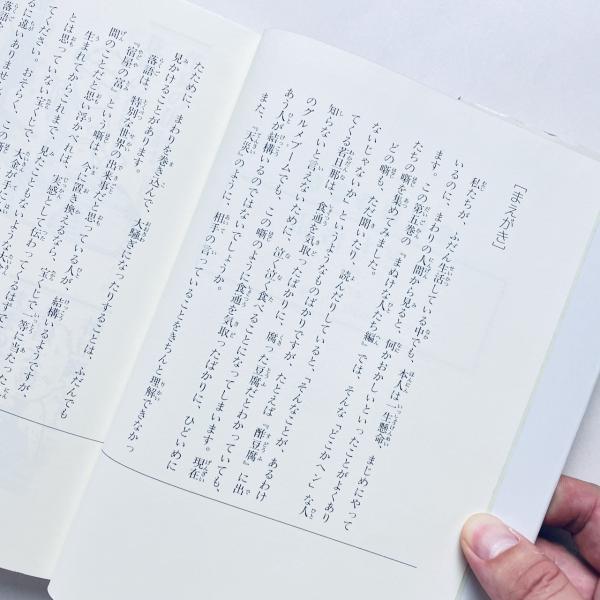 ［まえがき］
私たちが、ふだん生活している中でも、本人は一生懸命、まじめにやって
いるのに、まわりの人間から見ると、何かおかしいといったことがよくあり
ます。この第五巻の『まぬけな人たち編』では、そんな『どこかヘン』な人
たちの噺を集めてみました。
どの噺も、ただ聞いたり、読んだりしていると、『そんなことが、あるわけ
ないじゃないか』というようなものばかりですが、たとえば『酢豆腐』に出
てくる若旦那は、食通を気取ったばかりに、腐った豆腐だとわかっていても、
知らないと言えないために、泣く泣く食べることになってしまいます。現在
のグルメブームでも、この噺のように食通を気取ったばかりに、ひどいめに
あう人が結構いるのではないでしょうか。
また、『天災』のように、相手の言っていることをきちんと理解できなかっ
たために、まわりを巻き込んで、大騒ぎになったりすることは、ふだんでも
見かけることがあります。
落語は、特別な世界の出来事だと思っている人が、結構いるようですが、
『宿屋の富』という噺は、今に置き換えるなら、宝くじで一等に当たった人
間のことだと思い浮かべれば、実感として伝わってくるはずで
生まれてからこれまで、見たこともないような大
とは思っていない宝くじで、大金が手に
てください。おそらく、この
るに違いありませ
落語を